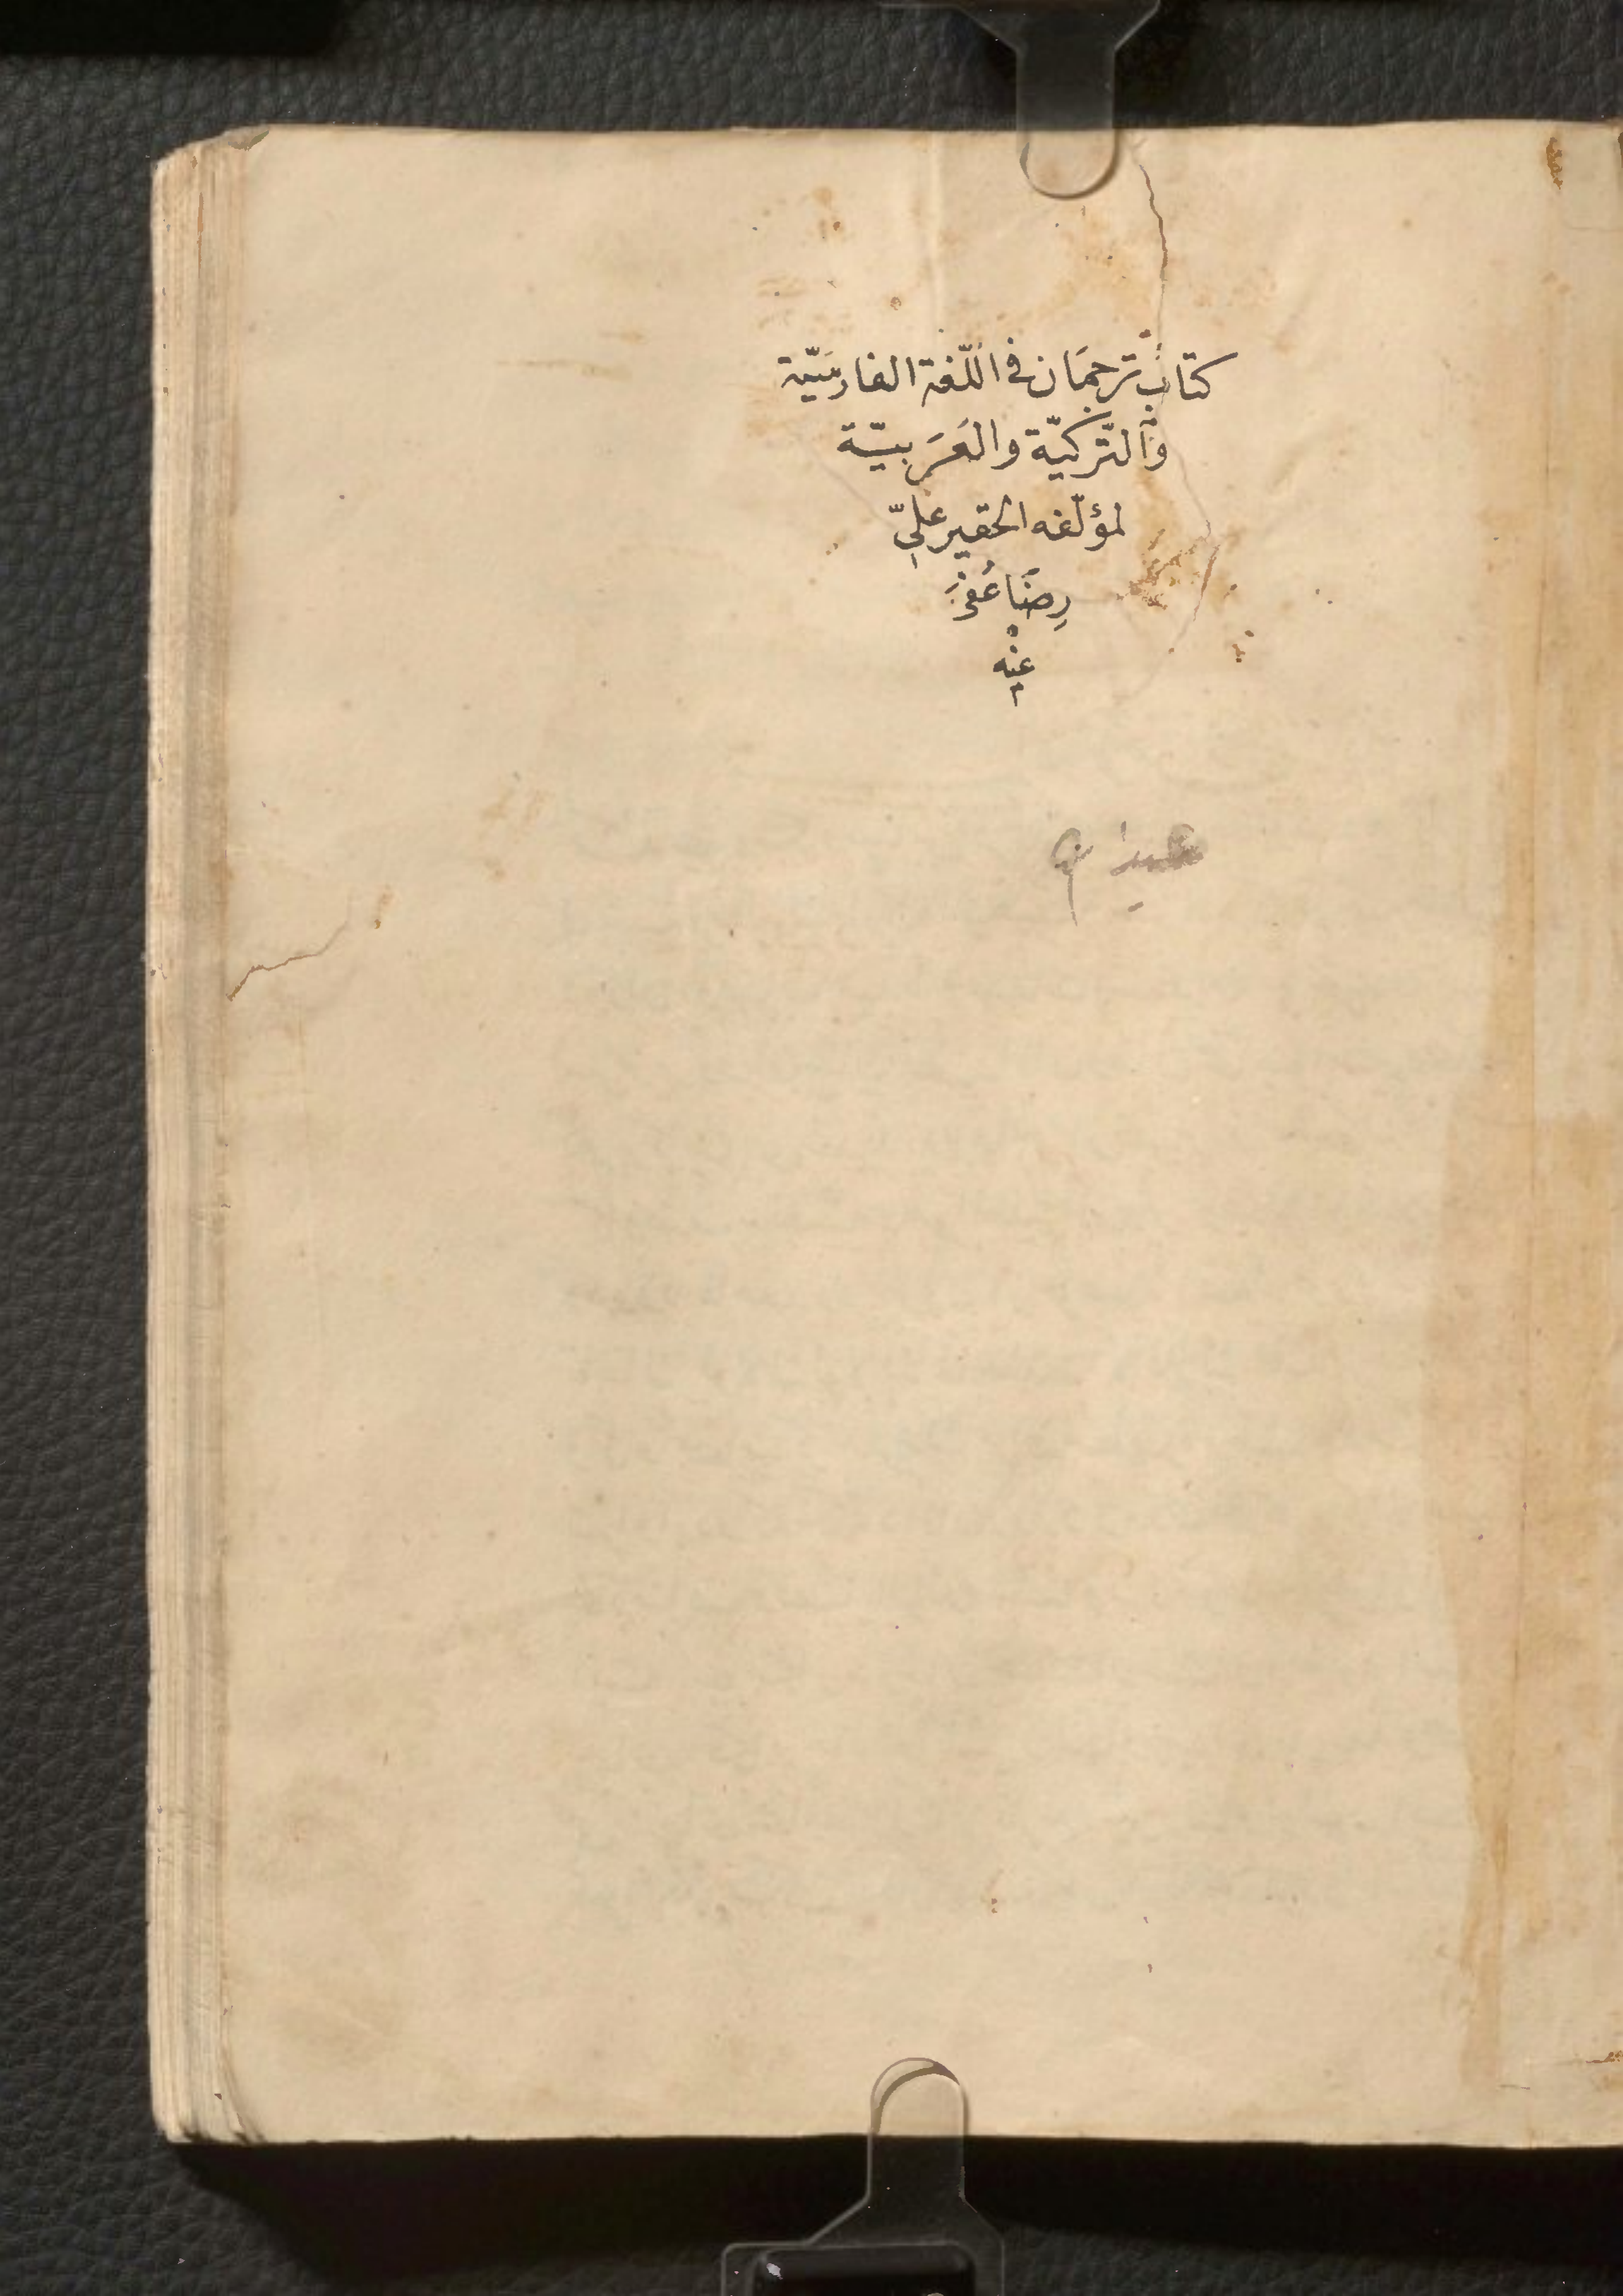 كتاب ترجمَان في اللّغة الفارسَيّة
والتّركيّة والعَرَبيّة
لمؤلّفه الحقير عليّ
رِضَا عُفِيَ
عنْه